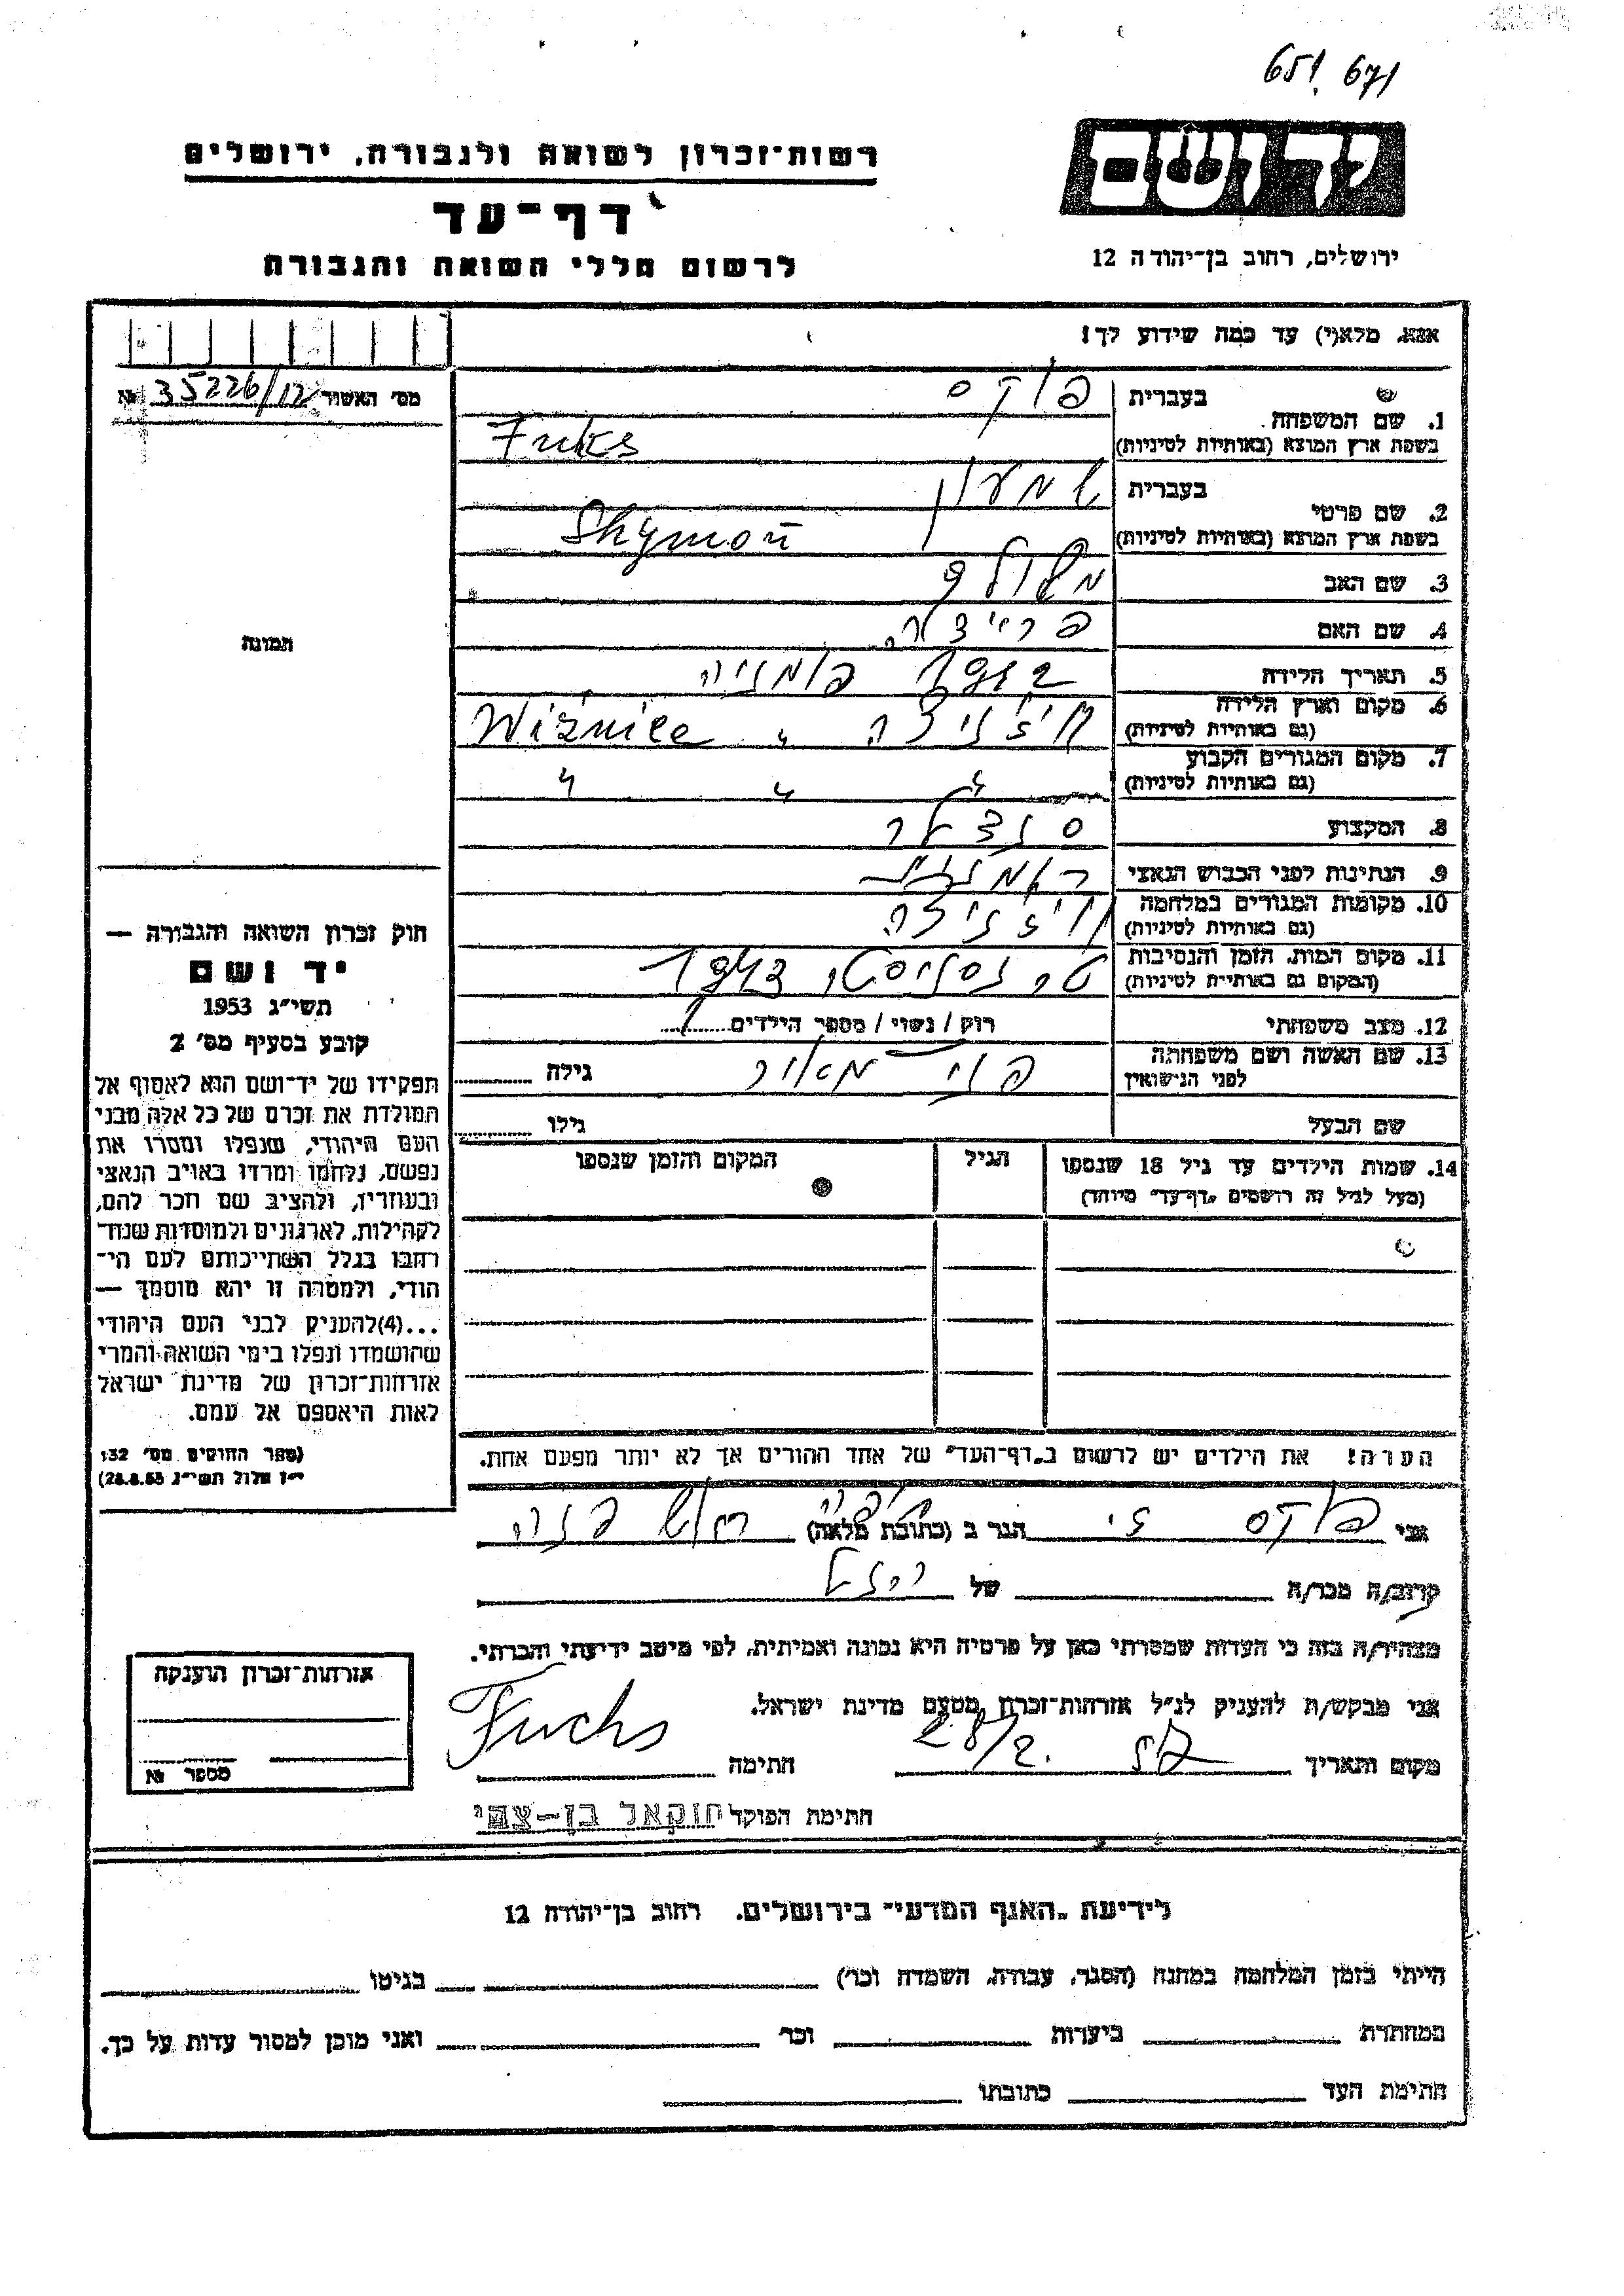 651 671
רשות-זכרון לשואה ולגבורה, ירושלים
יד ושם
דף-עד
ירושלים, רחוב בן-יהודה 12
לרשום חללי השואה והגבורה
אנא, מלא(י) עד כמה שידוע לך!
מס' האשור № 35226/12
1. שם המשפחה בעברית פוקס
בשפת ארץ המוצא (באותיות לטיניות) Fuks
2. שם פרטי בעברית שמעון
בשפת ארץ המוצא (באותיות לטיניות) Shymon
3. שם האב משולם
4. שם האם
5. תאריך הלידה
6. מקום וארץ הלידה
(גם באותיות לטיניות) ויזניצה " Wižnice
7. מקום המגורים הקבוע
(גם באותיות לטיניות) " " "
8. המקצוע סנדלר
9. הנתינות לפני הכבוש הנאצי
10. מקומות המגורים במלחמה
(גם באותיות לטיניות) ויזניצה
11. מקום המות, הזמן והנסיבות
(המקום גם באותיות לטיניות)
12. מצב משפחתי רוק / נשוי / מספר הילדים 1
13. שם האשה ושם משפחתה
לפני הנישואין גילה
שם הבעל גילו
14. שמות הילדים עד גיל 18 שנספו הגיל המקום והזמן שנספו
(מעל לגיל זה רושמים „דף-עד" מיוחד)
הערה! את הילדים יש לרשום ב„דף-העד" של אחד ההורים אך לא יותר מפעם אחת.
תמונה
חוק זכרון השואה והגבורה —
יד ושם
תשי"ג 1953
קובע בסעיף מס' 2
תפקידו של יד-ושם הוא לאסוף אל
המולדת את זכרם של כל אלה מבני
העם היהודי, שנפלו ומסרו את
נפשם, נלחמו ומרדו באויב הנאצי
ובעוזריו, ולהציב שם וזכר להם,
לקהילות, לארגונים ולמוסדות שנח-
רבו בגלל השתייכותם לעם הי-
הודי, ולמטרה זו יהא מוסמך —
...(4)להעניק לבני העם היהודי
שהושמדו ונפלו בימי השואה והמרי
אזרחות-זכרון של מדינת ישראל
לאות היאספם אל עמם.
(ספר החוקים מס' 132
י"ז אלול תשי"ג 28.8.53)
אני פוקס הגר ב (כתובת מלאה)
קרוב/ה מכר/ה של
מצהיר/ה בזה כי העדות שמסרתי כאן על פרטיה היא נכונה ואמיתית, לפי מיטב ידיעתי והכרתי.
אני מבקש/ת להעניק לנ"ל אזרחות-זכרון מטעם מדינת ישראל.
מקום ותאריך 28/2. חתימה Fuchs
חתימת הפוקד חזקאל בן-צבי
אזרחות-זכרון הוענקה
מספר №
לידיעת „האגף המדעי" בירושלים, רחוב בן-יהודה 12
הייתי בזמן המלחמה במחנה (הסגר, עבודה, השמדה וכו') בגיטו
במחתרת ביערות וכו' ואני מוכן למסור עדות על כך.
חתימת העד כתובתו